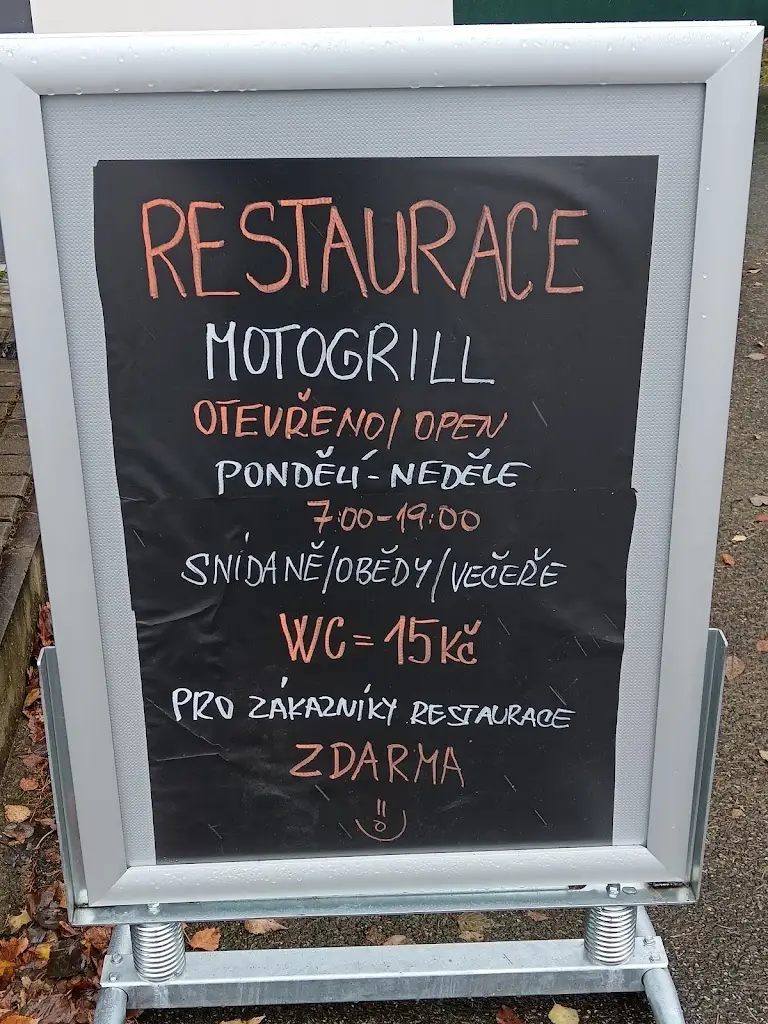 RESTAURACE
MOTOGRILL
OTEVŘENO/ OPEN
PONDĚLÍ-NEDĚLE
7:00-19:00
SNÍDANĚ/OBĚDY/VEČEŘE
WC = 15 Kč
PRO ZÁKAZNÍKY RESTAURACE
ZDARMA